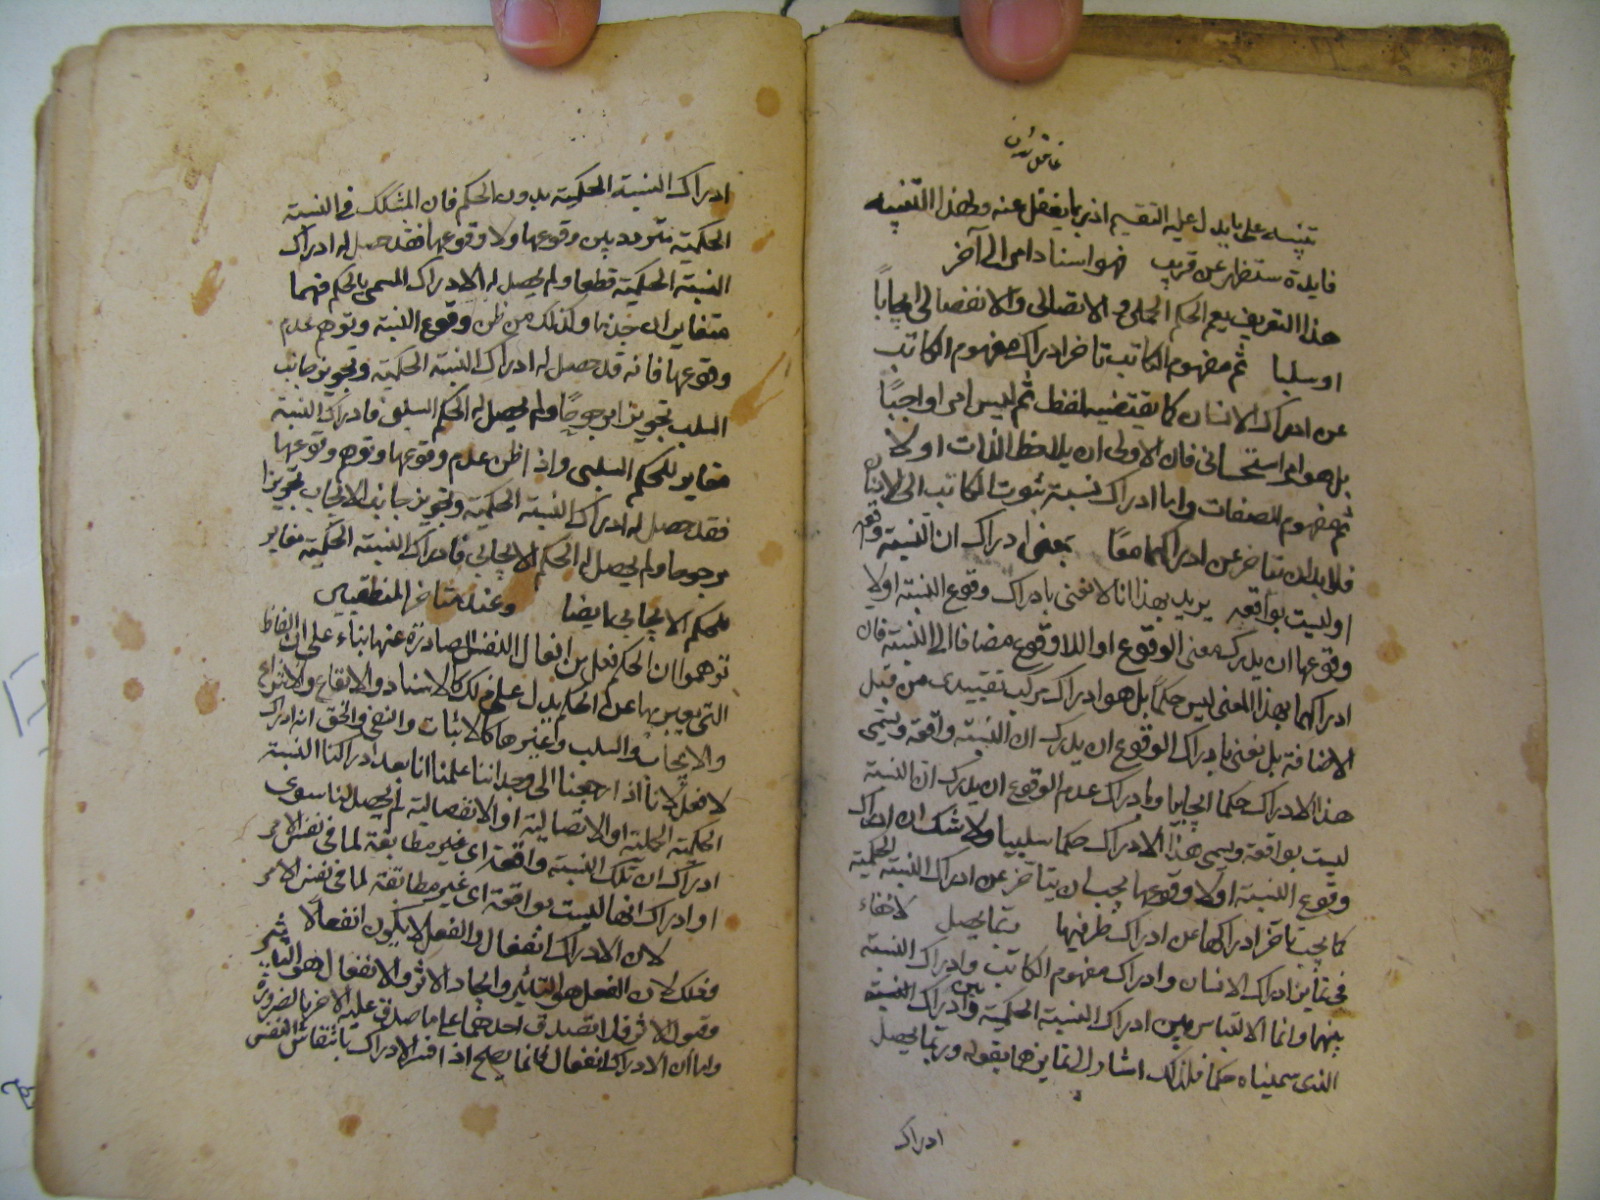 تنبيه على ما يدل عليه التقسيم اذ ربما يغفل عنه ولهذا التنبيه
فايدة ستظهر عن قريب فهو اسناد امر الى آخر
هذا التعريف يعم الحكم الحملى و الاتصالى والانفصالى ايجاباً
او سلبا ثم مفهوم الكاتب تاخر ادراك مفهوم الكاتب
عن ادراك الانسان كما يقتضيه لفظ ثم ليس امرا واجبًا
بل هو امر استحسانى فان الاولى ان يلاحظ الذات اولا
ثم مفهوم الصفات واما ادراك نسبة ثبوت الكاتب الى الانسان
فلابد ان تتاخر عن ادراكهما معًا بمعنى ادراك ان النسبة واقعة
او ليست بواقعة يريد بهذا انا لا نعنى بادراك وقوع النسبة اولا
وقوعها ان يدرك معنى الوقوع او اللاوقوع مضافا الى النسبة فان
ادراكهما بهذا المعنى ليس حكمًا بل هو ادراك مركب تقييدى من قبيل
الاضافة بل نعنى بادراك الوقوع ان يدرك ان النسبة واقعة ويسمى
هذا الادراك حكما ايجابيا وبادراك عدم الوقوع ان يدرك ان النسبة
ليست بواقعة ويسمى هذا الادراك حكما سلبيا ولا شك ان ادراك
وقوع النسبة اولا وقوعها يجب ان يتاخر عن ادراك النسبة الحكمية
كما يجب تاخر ادراكها عن ادراك طرفيها وبما يحصل لا خفاء
فى تمايز ادراك الانسان وادراك مفهوم الكاتب وادراك النسبة
بينهما وانما الالتباس بين ادراك النسبة الحكمية وبين ادراك النسبة
الذى سميناه حكما فلذلك اشار الى تمايزهما بقوله وربما يحصل
ادراك
ادراك النسبة الحكمية بدون الحكم فان المتشكك فى النسبة
الحكمية متردد بين وقوعها ولا وقوعها فقد حصل له ادراك
النسبة الحكمية قطعا ولم يحصل له الادراك المسمى بالحكم فهما
متغايران جزما وكذلك من ظن وقوع النسبة وتوهم عدم
وقوعها فانه قد حصل له ادراك النسبة الحكمية وتجويز جانب
السلب تجويزا مرجوحًا ولم يحصل له الحكم السلبى فادراك النسبة
مغاير للحكم السلبى واذا ظن عدم وقوعها وتوهم وقوعها
فقد حصل له ادراك النسبة الحكمية وتجويز جانب الايجاب تجويزا
مرجوحا ولم يحصل له الحكم الايجابى فادراك النسبة الحكمية مغاير
للحكم الايجابى ايضا وعند متاخر المنطقيين
توهموا ان الحكم فعل من افعال النفس الصادرة عنها بناء على ان الفاظ
التى يعبر بها عن الحكم يدل على ذلك كالاسناد والايقاع والانتزاع
والايجاب والسلب وغيرها كالاثبات والنفى والحق انه ادراك
لا فعل لانا اذا رجعنا الى وجداننا علمنا انا بعد ادراكنا النسبة
الحكمية الحملية او الاتصالية او الانفصالية لم يحصل لنا سوى
ادراك ان تلك النسبة واقعة اى غير مطابقة لما فى نفس الامر
او ادراك انها ليست بواقعة اى غير مطابقة لما فى نفس الامر
لان الادراك انفعال والفعل لا يكون انفعالا
وذلك لان الفعل هو التاثير وايجاد الاثر والانفعال هو التاثر
وقبول الاثر فلا يصدق احدهما على ما صدق عليه الاخر بالضرورة
واما ان الادراك انفعال فانما يصح اذا فسر الادراك بانتقاش النفس